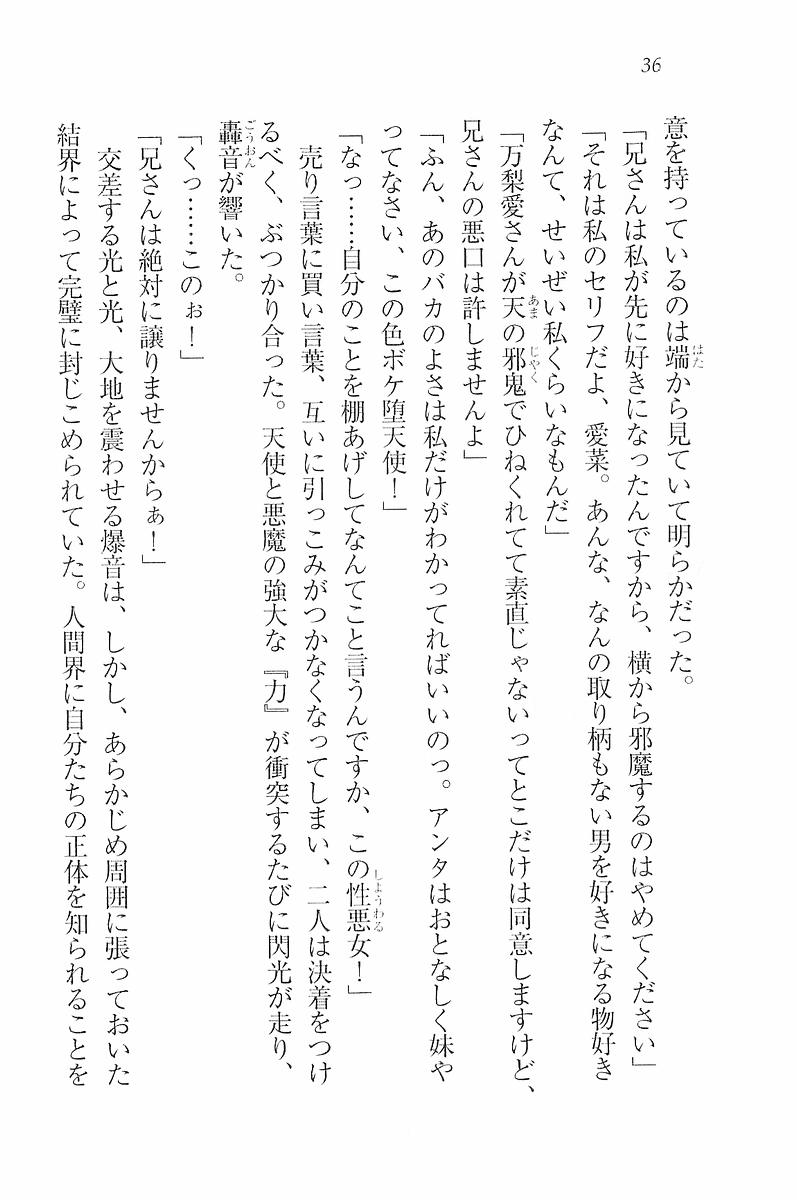 36
意を持っているのは端から見ていて明らかだった。
「兄さんは私が先に好きになったんですから、横から邪魔するのはやめてください」
「それは私のセリフだよ、愛菜。あんな、なんの取り柄もない男を好きになる物好き
なんて、せいぜい私くらいなもんだ」
「万梨愛さんが天の邪鬼でひねくれてて素直じゃないってとこだけは同意しますけど、
兄さんの悪口は許しませんよ」
「ふん、あのバカのよさは私だけがわかってればいいのっ。アンタはおとなしく妹や
ってなさい、この色ボケ堕天使！」
「なっ……自分のことを棚あげしてなんてこと言うんですか、この性悪女！」
売り言葉に買い言葉、互いに引っこみがつかなくなってしまい、二人は決着をつけ
るべく、ぶつかり合った。天使と悪魔の強大な『力』が衝突するたびに閃光が走り、
轟音が響いた。
「くっ……このぉ！」
「兄さんは絶対に譲りませんからぁ！」
交差する光と光、大地を震わせる爆音は、しかし、あらかじめ周囲に張っておいた
結界によって完璧に封じこめられていた。人間界に自分たちの正体を知られることを